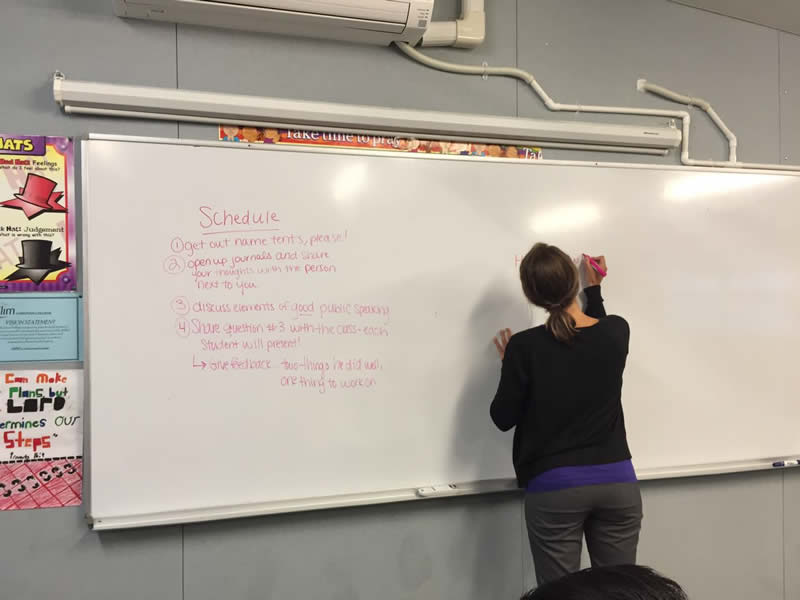 Take time to pray
HATS
Red Hat: Feelings
What do I feel about this?
Hat: Judgement
What is wrong with this?
VISION STATEMENT
Can Make
Plans, but
LORD
ermines Our
Steps"
Schedule
① get out name tents, please!
② open up journals and share
your thoughts with the person
next to you
③ discuss elements of good public speaking
④ Share question #3 with the class - each
Student will present!
↳ Give feedback... two things he did well,
one thing to work on
H